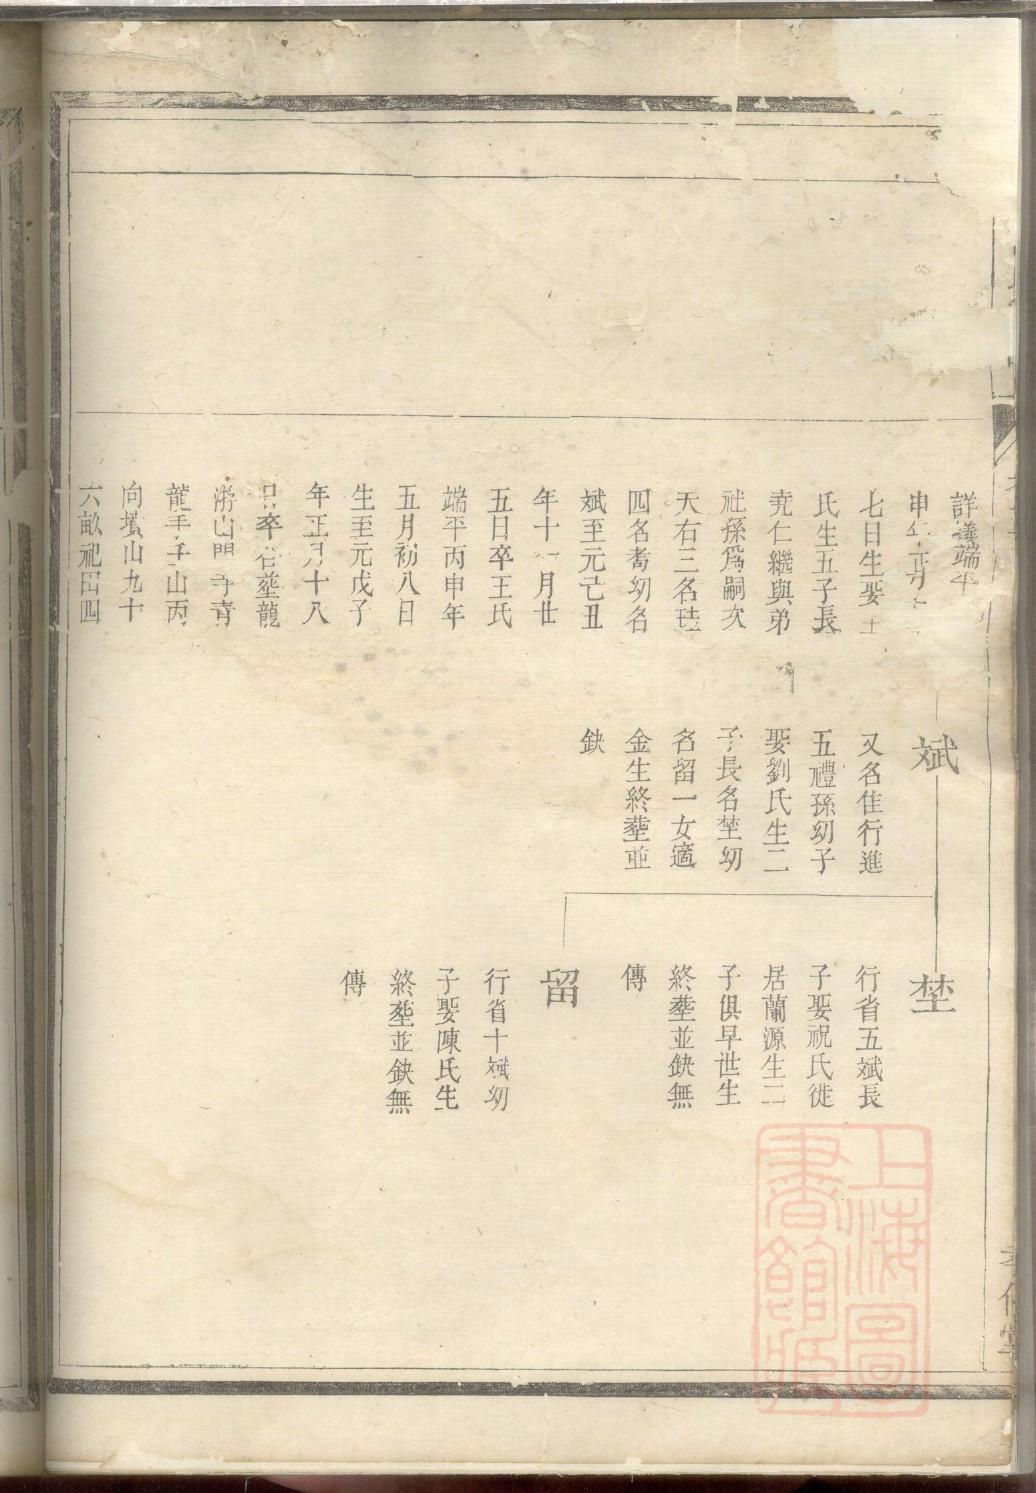 詳議端平
申年正月
七日生娶
氏生五子長
堯仁繼與弟
社孫爲嗣次
天右三名琺
四名喬幼名
斌至元己丑
年十一月廿
五日卒王氏
端平丙申年
五月初八日
生至元戊子
年正月十八
日卒合塟龍
游山門寺青
龍手子山丙
向墳山九十
六畝祀田四
斌
又名隹行進
五禮孫幼子
娶劉氏生二
子長名埜幼
名留一女適
金生終塟並
缺
埜
行省五斌長
子娶祝氏徙
居蘭源生二
子俱早世生
終塟並缺無
傳
留
行省十斌幼
子娶陳氏生
終塟並缺無
傳
上海圖
書館藏